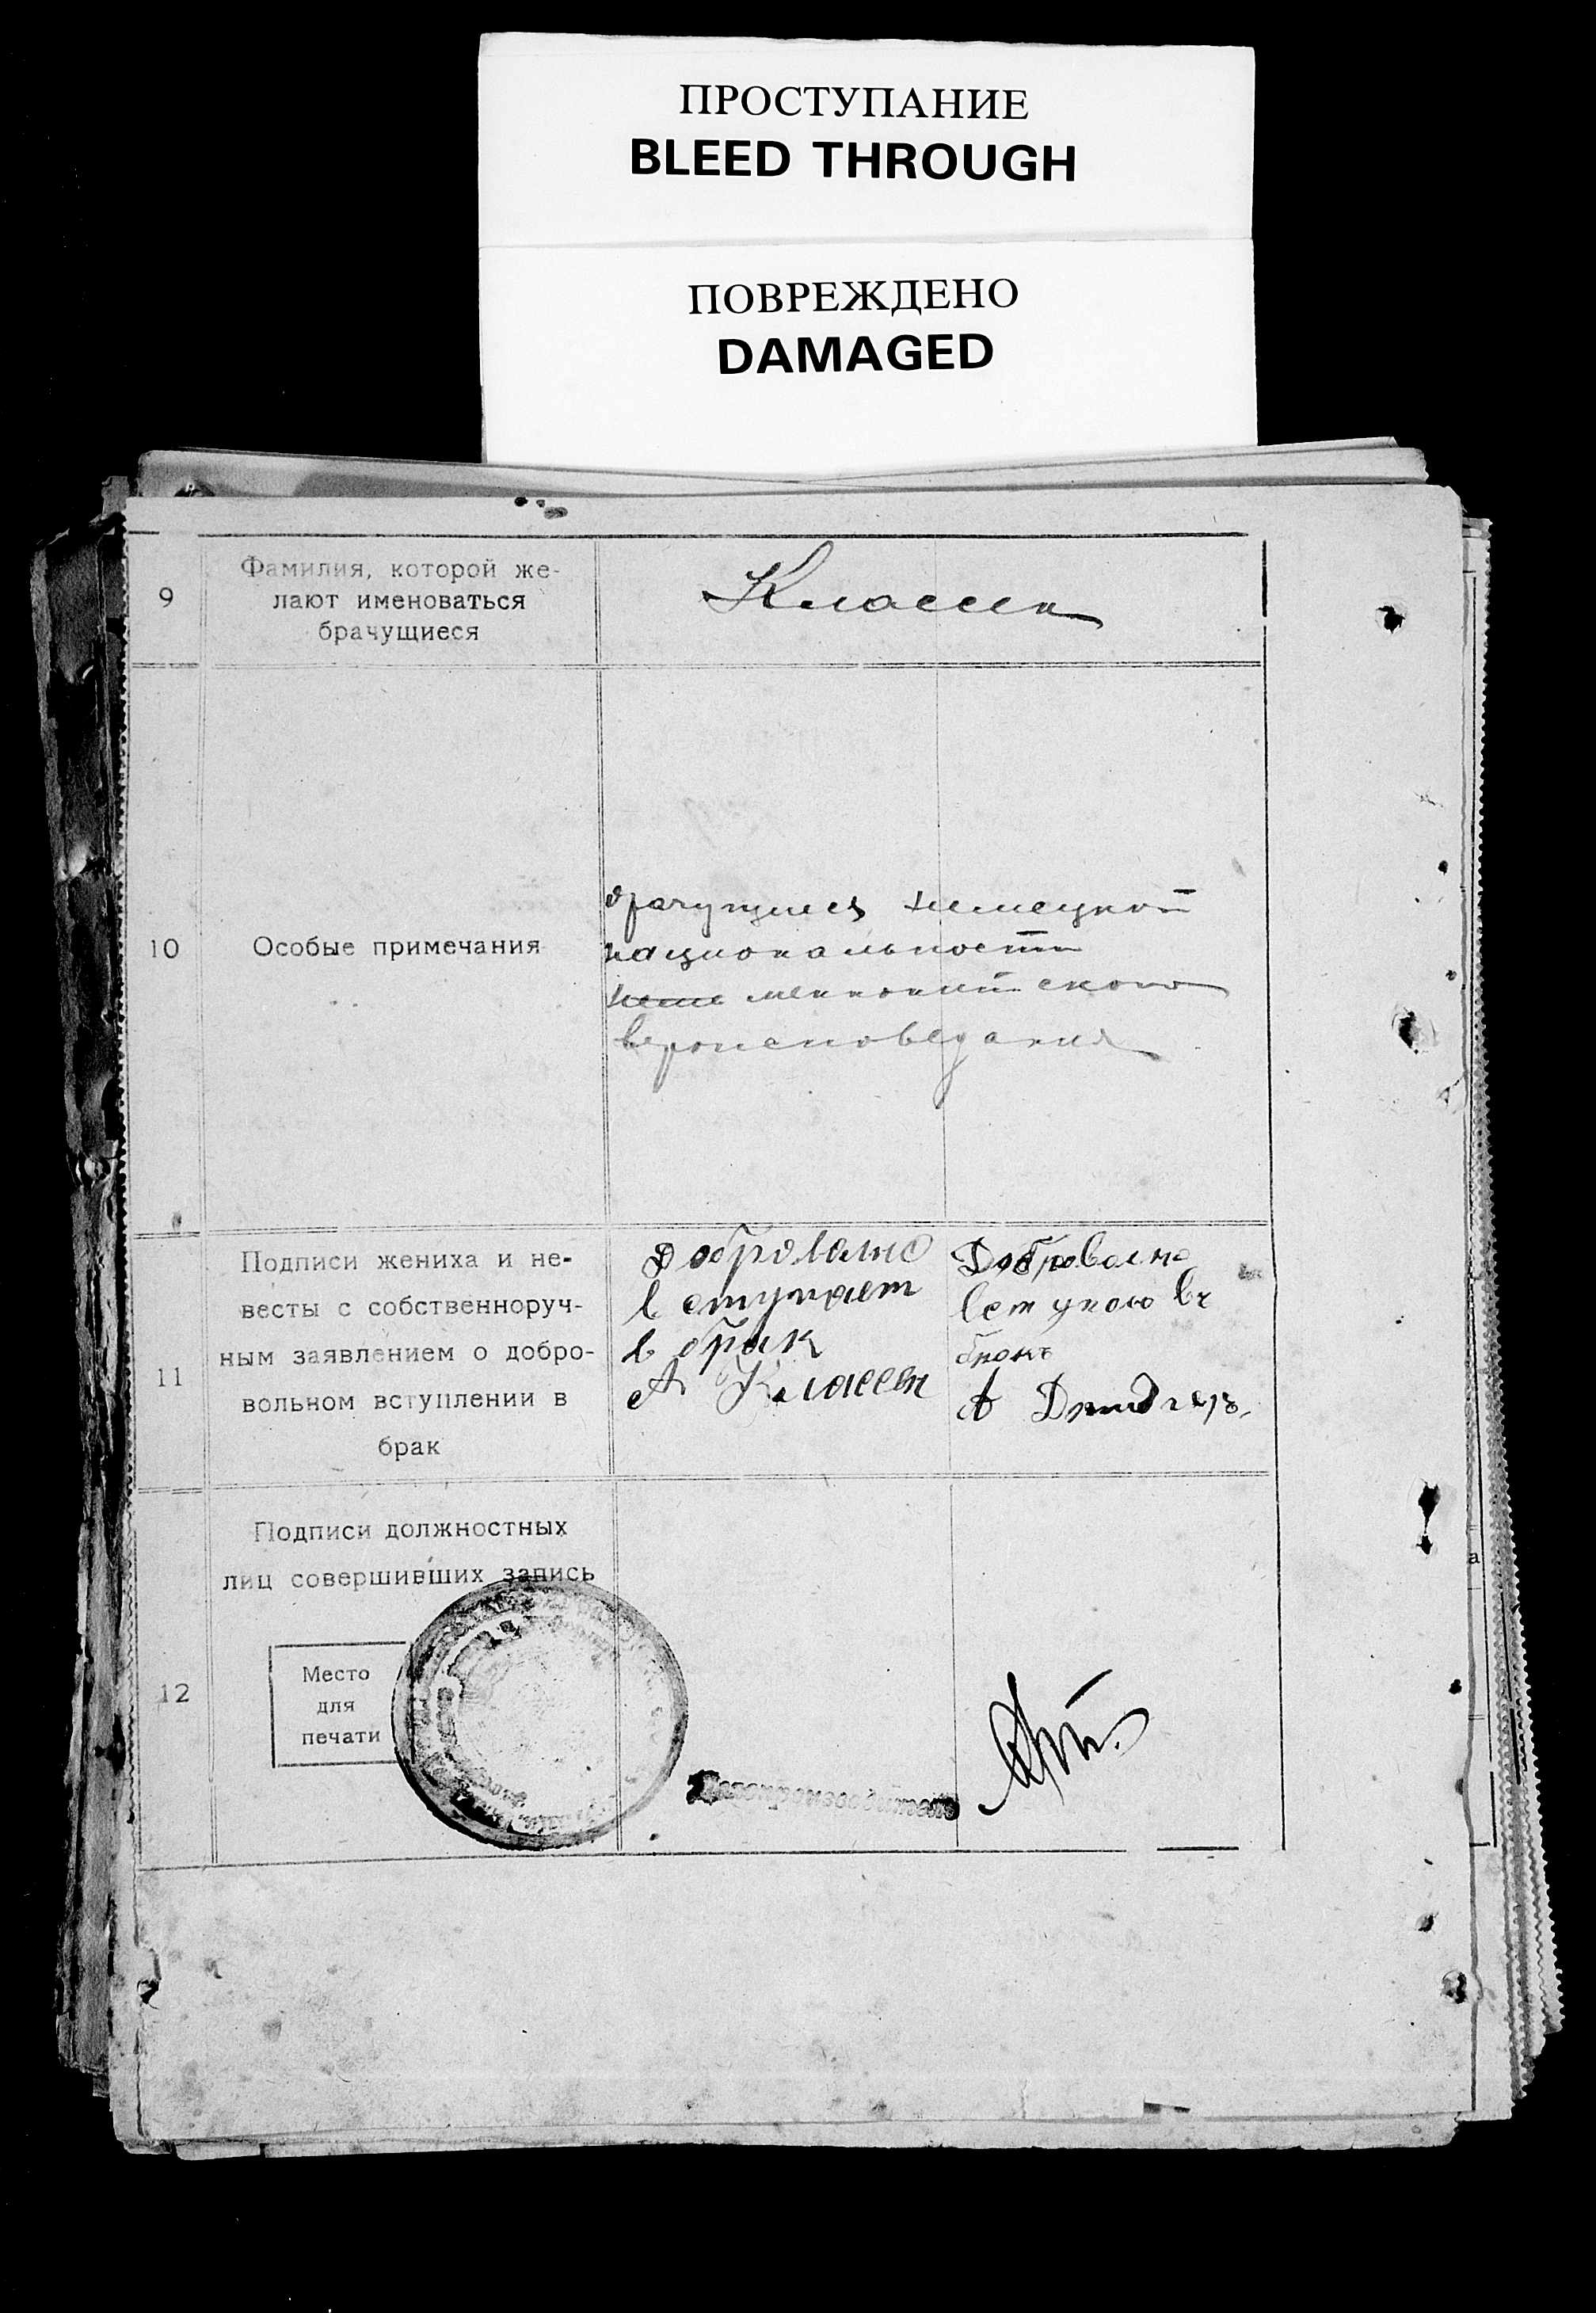 ПРОСТУПАНИЕ
BLEED THROUGH
ПОВРЕЖДЕНО
DAMAGED
9
Фамилия, которой же-
лают именоваться
брачущиеся
Классен
10
Особые примечания
брачущиеся немецкой
национальности
меннонитского
вероисповедания
11
Подписи жениха и не-
весты с собственноруч-
ным заявлением о добро-
вольном вступлении в
брак
Доброволно
вступает
в брак
А Классен
Доброволно
вступаю въ
бракъ
А
12
Подписи должностных
лиц совершивших запись
Место
для
печати
Делопроизводитель
а